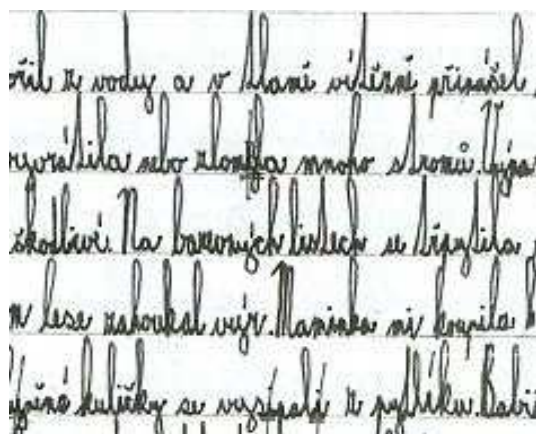 ořil z vody a v tlamě vítězně přinášel
vyvrátila nebo zlomila mnoho stromů. Vý
škodliví. Na barevných listech se třpytila
lese zahoukal výr. Maminka mi koupila
kuličky se vysypaly z pytlíku. Babi